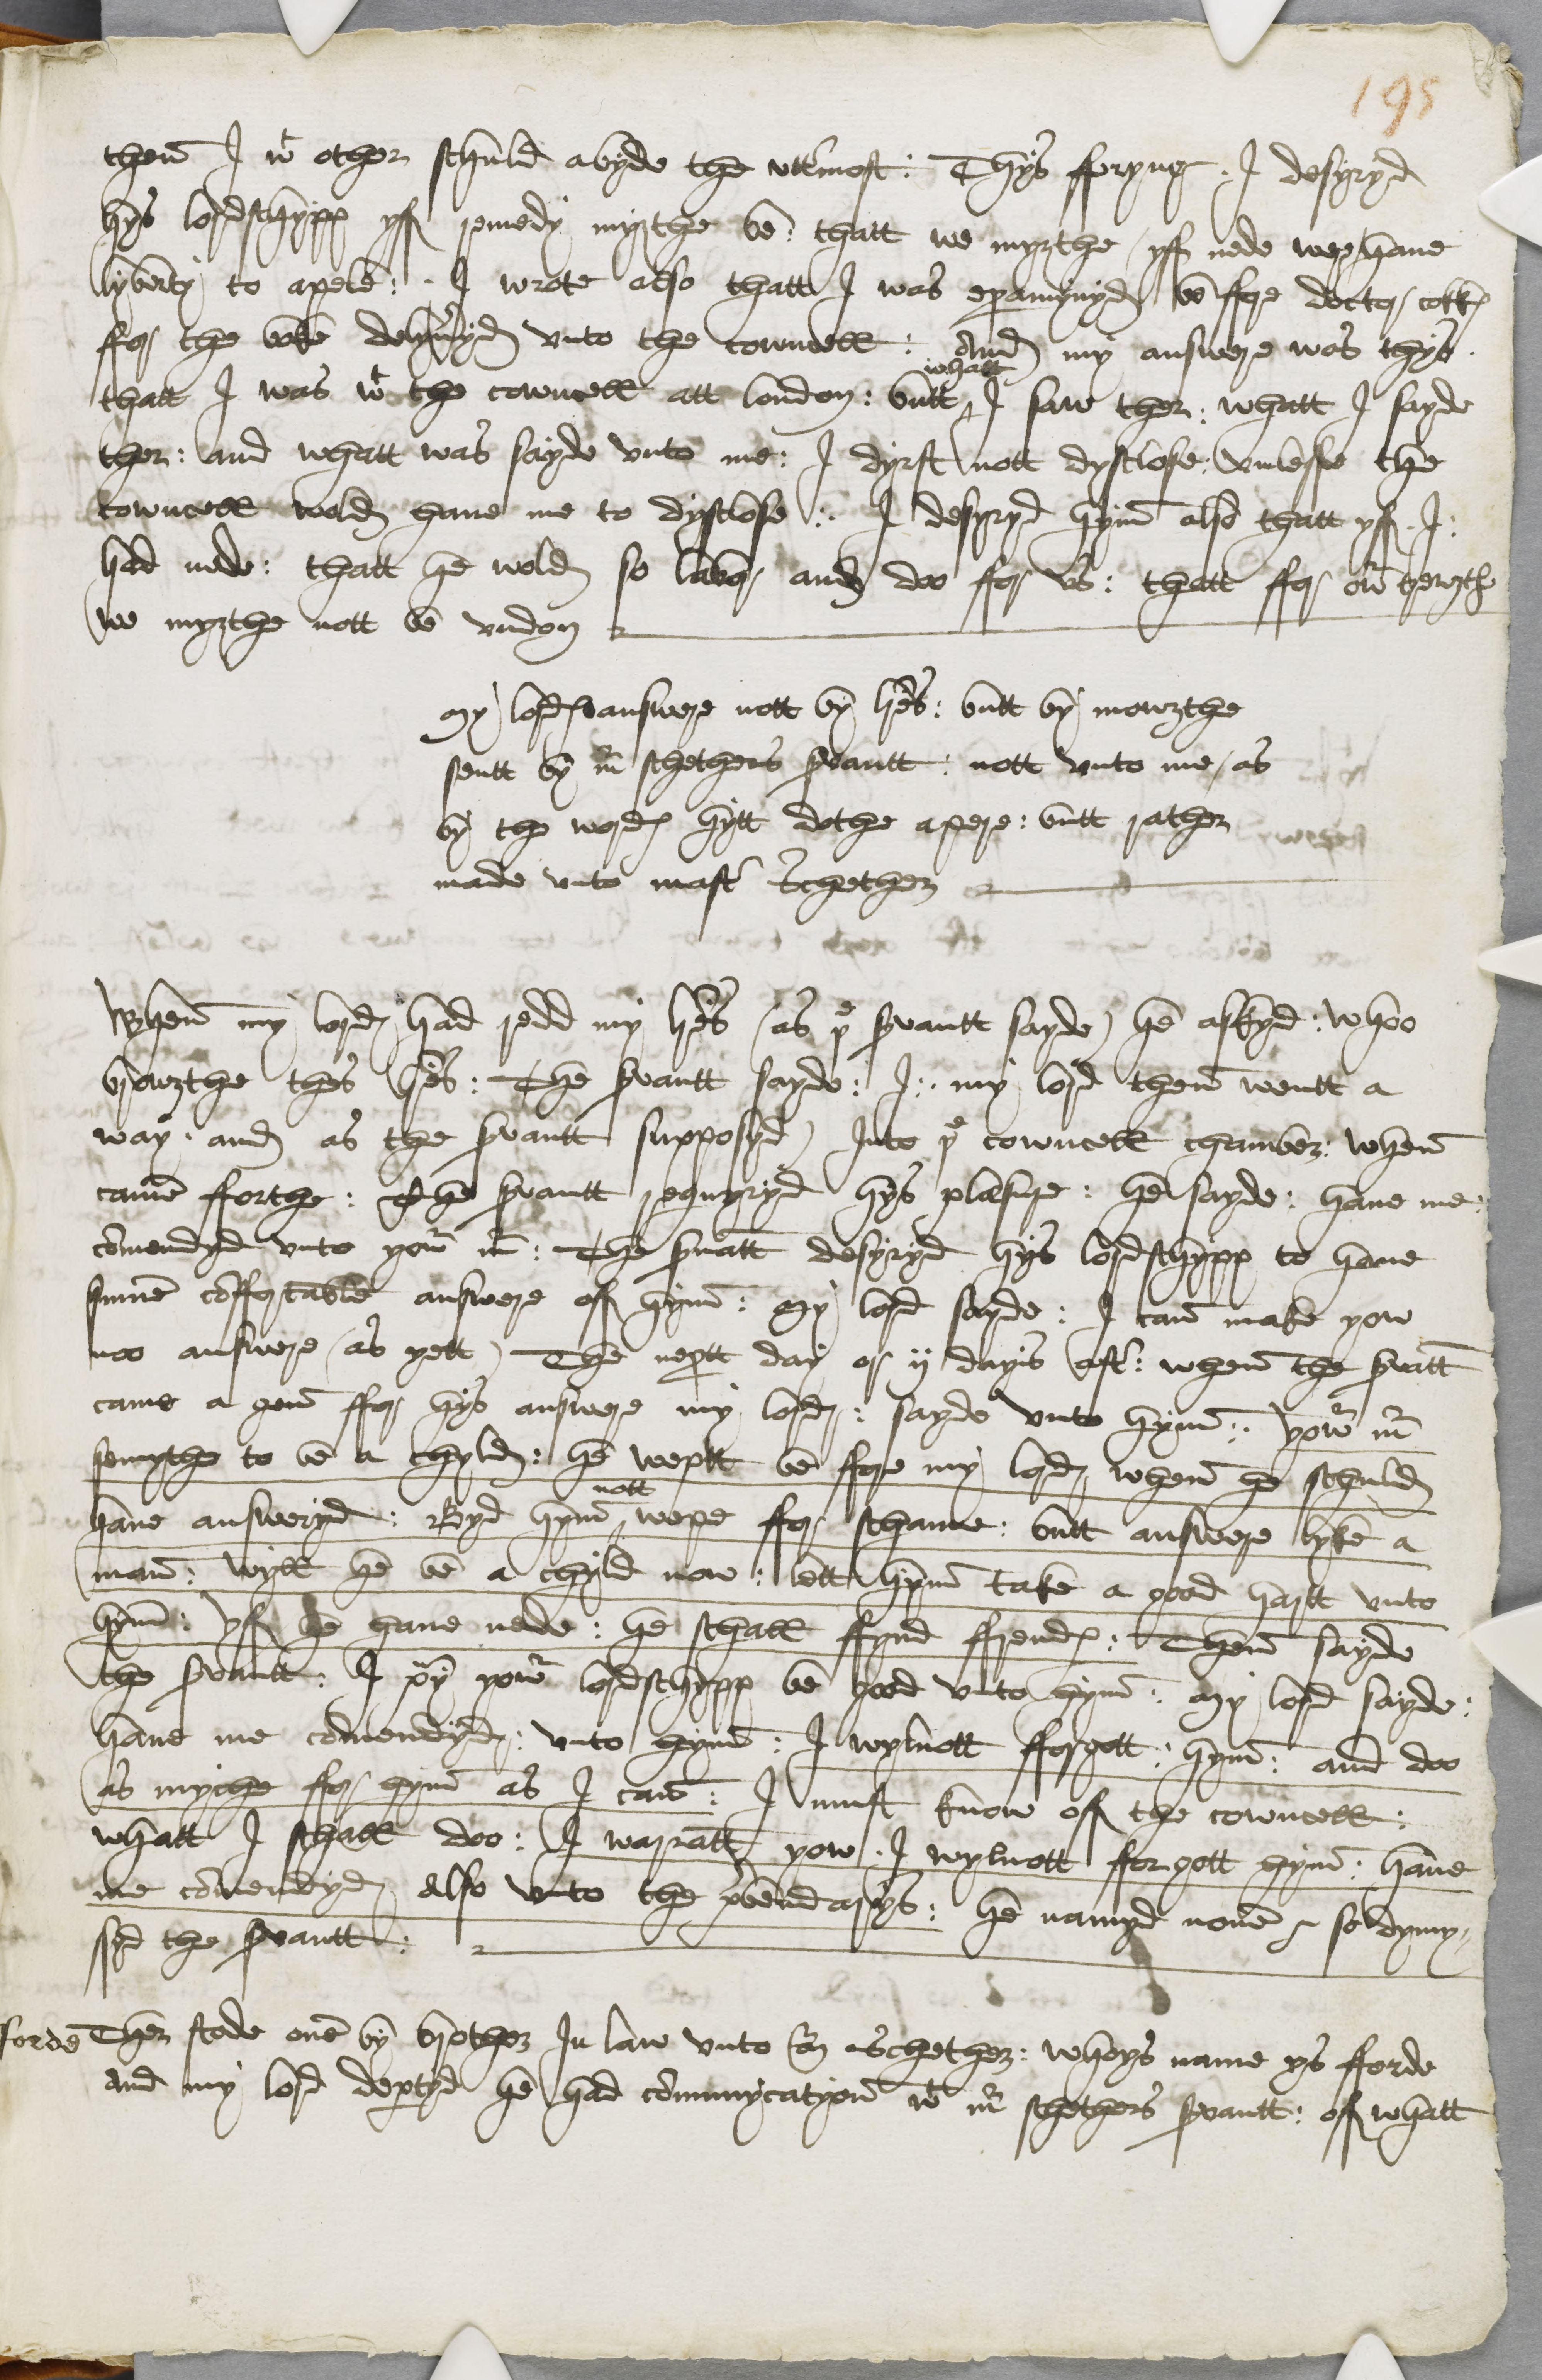 195
then I wt other schuld abyde the vttrmost: Thys fferyng. I desyryd
hys lordschypp yff remedy mygthe be: thatt we mygthe (yff nede wer) haue
lyberty to apele: I wrote also thatt I was examynyd be ffore doctor cokks
ffor the boke delyueryd vnto the cowncell: And my answere was thys.
thatt I was wt the cowncell att london: butt whatt I saw ther: whatt I sayde
ther: and whatt was sayde vnto me: I dyrst nott dysclose: vnlesse the
cowncell wold haue me to dysclose: I desyryd hym also thatt yff I:
had nede: thatt he wold so labor and doo ffor vs: thatt ffor owr trewgth
we mygthe nott be vndon
My lords answere nott by lres: butt by mowgthe
sentt by mr schethers seruantt: nott vnto me, as
by the words hytt dothe apere: butt rather
made vnto mastr Schether
When my lord had redd my lres (as ye seruantt sayde) he askyd: whoo
browgthe thes lres: The seruantt sayde: I: my lord then wentt a
way. and as the seruantt supposyd) Into ye cowncell chamber: when
came fforthe: The seruantt requyryd hys plesure: he sayde: haue me:
comendyd vnto yowr mr: The seruatt desyryd hys lordschypp to haue
sume confortable answere off hym: My lord sayde: I can make yow
noo answere (as yett) The nextt day or ij days aftr: when the seruatt
came a gen ffor hys answere my lord: sayde vnto hym: yowr mr
semythe to be a chyld: he weptt be ffore my lord when he schuld
haue answeryd: Byd hym nott wepe ffor schame: butt answere lyke a
man: wyll he be a chyld now: lett hym take a good hartt vnto
hym: yff he haue nede: he schall ffynd ffrends: Then sayde
the seruantt: I pray yowr lordschypp be good vnto hym: My lord sayde:
haue me comendyd: vnto hym: I wylnott fforgett: hym: and doo
as myche ffor hym as I can: I must know off the cowncell:
whatt I schall doo: I warratt yow. I wylnott fforgett hym: haue
me comendyd also vnto the prebendarys: he namyd none so dymy-
ssyd the seruantt:
forde Ther stode one by brother In law vnto Schether: whoys name ys fforde
and my lord departyd he had communycatyon wt mr schethers seruantt: off whatt